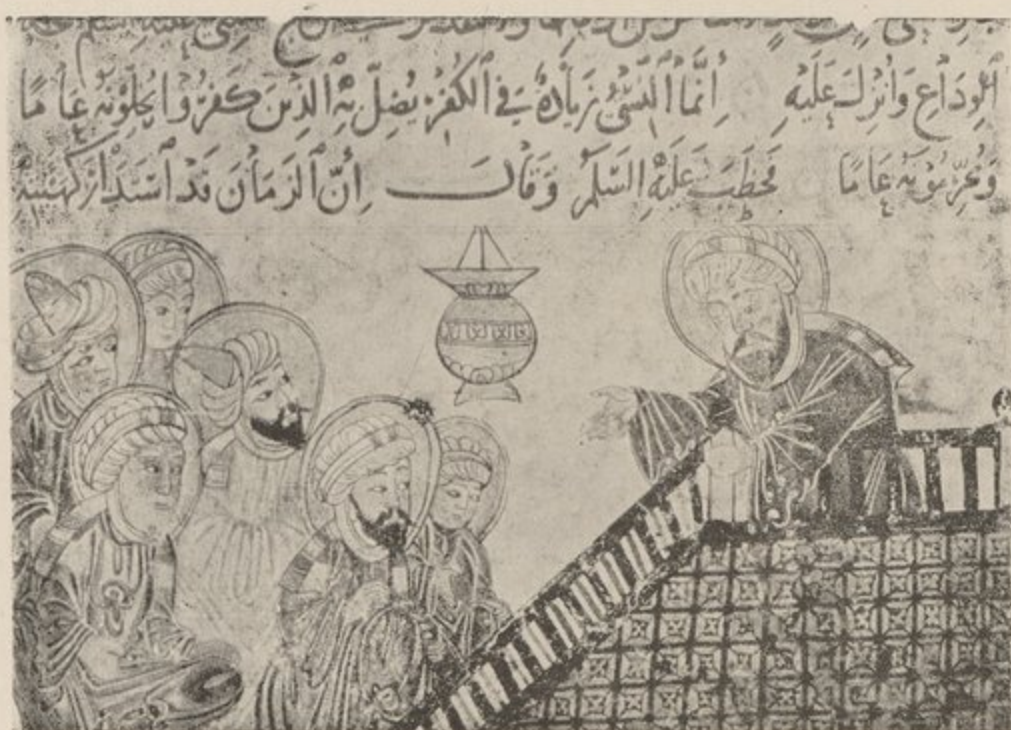 اَلْوِدَاعِ وَاُنْزِلَ عَلَيْهِ إِنَّمَا اَلنَّسِىُّ زِيَادَةٌ فِي اَلْكُفْرِ يُضَلُّ بِهِ اَلَّذِينَ كَفَرُوا يُحِلُّونَهُ عَامًا
وَيُحَرِّمُونَهُ عَامًا فَخَطَبَ عَلَيْهِ السَّلٰمُ وَقَالَ إِنَّ اَلزَّمَانَ قَدِ اَسْتَدَارَ كَهَيْئَتِهِ